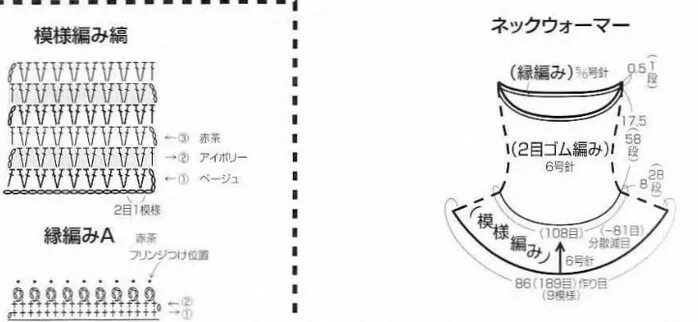 模様編み縞
③ 赤茶
② アイボリー
① ベージュ
2目1模様
縁編みA
赤茶
フリンジつけ位置
②
①
ネックウォーマー
(縁編み) 5/6号針
0.5(1段)
17.5(58段)
(2目ゴム編み)
6号針
8(28段)
(模様編み)
(108目)
(−81目)
分散減目
6号針
86(189目)作り目
(9模様)